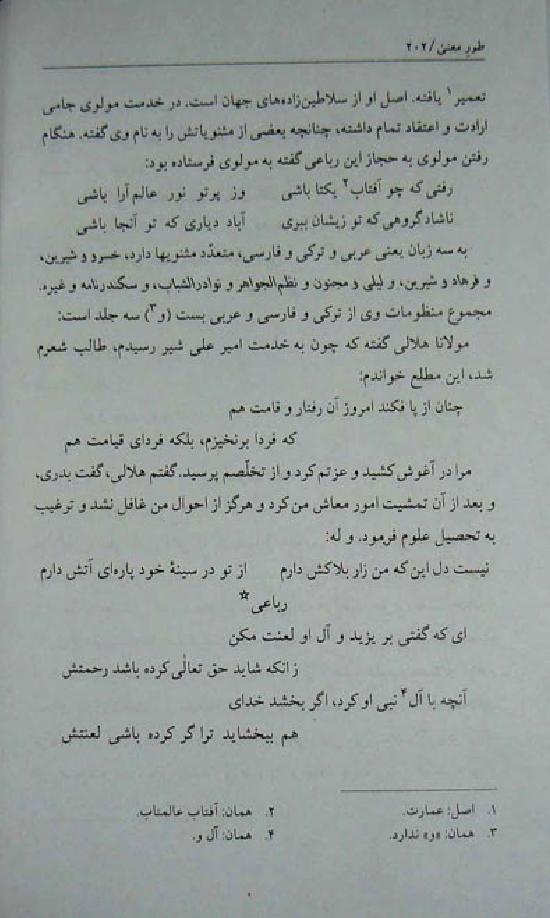 طور معنی / ۲۰۲
تعمیر۱ یافته. اصل او از سلاطین‌زاده‌های جهان است. در خدمت مولوی جامی
ارادت و اعتقاد تمام داشته، چنانچه بعضی از مثنویاتش را به نام وی گفته. هنگام
رفتن مولوی به حجاز این رباعی گفته به مولوی فرستاده بود:
رفتی که چو آفتاب۲ یکتا باشی وز پرتو نور عالم‌آرا باشی
ناشاد گروهی که تو زیشان ببری آباد دیاری که تو آنجا باشی
به سه زبان یعنی عربی و ترکی و فارسی، متعدّد مثنویها دارد، خسرو و شیرین،
و فرهاد و شیرین، و لیلی و مجنون و نظم‌الجواهر و نوادرالشباب، و سکندرنامه و غیره.
مجموع منظومات وی از ترکی و فارسی و عربی بست (و۳) سه جلد است:
مولانا هلالی گفته که چون به خدمت امیر علی شیر رسیدم، طالب شعرم
شد، این مطلع خواندم:
چنان از پا فکند امروز آن رفتار و قامت هم
که فردا برنخیزم، بلکه فردای قیامت هم
مرا در آغوش کشید و عزتم کرد و از تخلّصم پرسید. گفتم هلالی، گفت بدری،
و بعد از آن تمشیت امور معاش من کرد و هرگز از احوال من غافل نشد و ترغیب
به تحصیل علوم فرمود. و له:
نیست دل این که من زار بلاکش دارم از تو در سینهٔ خود پاره‌ای آتش دارم
رباعی☆
ای که گفتی بر یزید و آل او لعنت مکن
زانکه شاید حق تعالٰی کرده باشد رحمتش
آنچه با آل۴ نبی او کرد، اگر بخشد خدای
هم ببخشاید ترا گر کرده باشی لعنتش
۱. اصل: عمارت. ۲. همان: آفتاب عالمتاب.
۳. همان: «و» ندارد. ۴. همان: آل و.